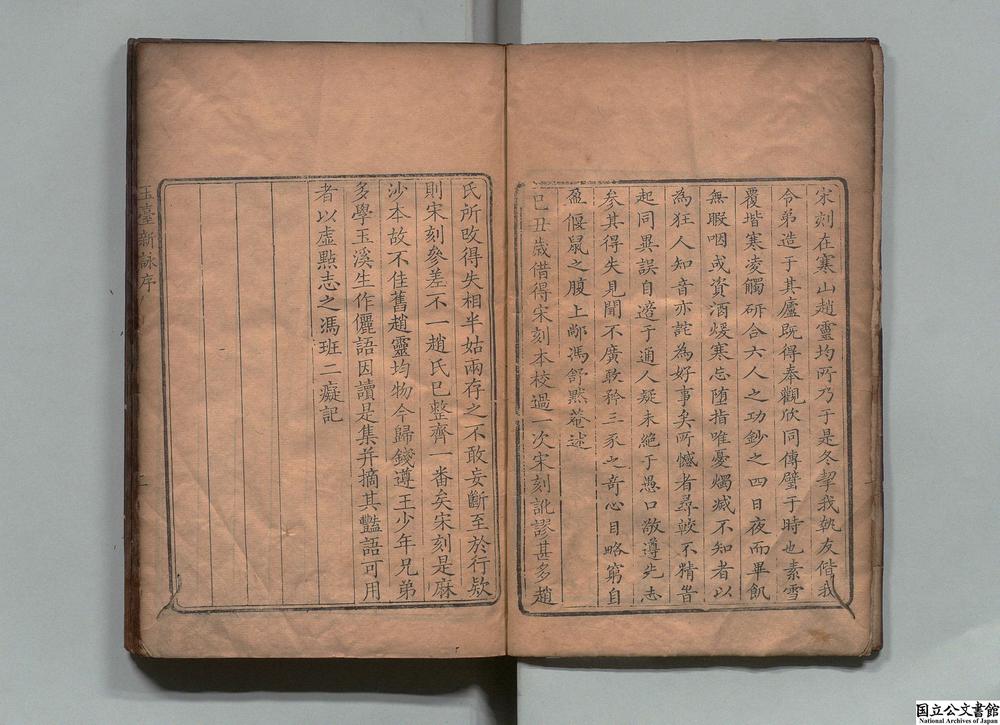 宋刻在寒山趙靈均所乃于是冬挈我執友偕我
令弟造于其廬既得奉觀欣同傳璧于時也素雪
覆堦寒凌觸研合六人之功鈔之四日夜而畢飢
無暇咽或資酒煖寒忘墮指唯憂燭滅不知者以
為狂人知音亦詫為好事矣所憾者尋較不精昔
起同異誤自邉于通人疑未絶于愚口敬遵先志
参其得失見聞不廣敢矜三豕之奇心目略窮自
盈偃鼠之腹上鄖馮舒黙菴述
己丑歳借得宋刻本校過一次宋刻訛謬甚多趙
氏所改得失相半姑兩存之不敢妄斷至於行欵
則宋刻參差不一趙氏已整齊一番矣宋刻是麻
沙本故不佳舊趙靈均物今歸錢遵王少年兄弟
多學玉溪生作儷語因讀是集并摘其豔語可用
者以虚點志之馮班二癡記
玉臺新詠序
二
国立公文書館
National Archives of Japan